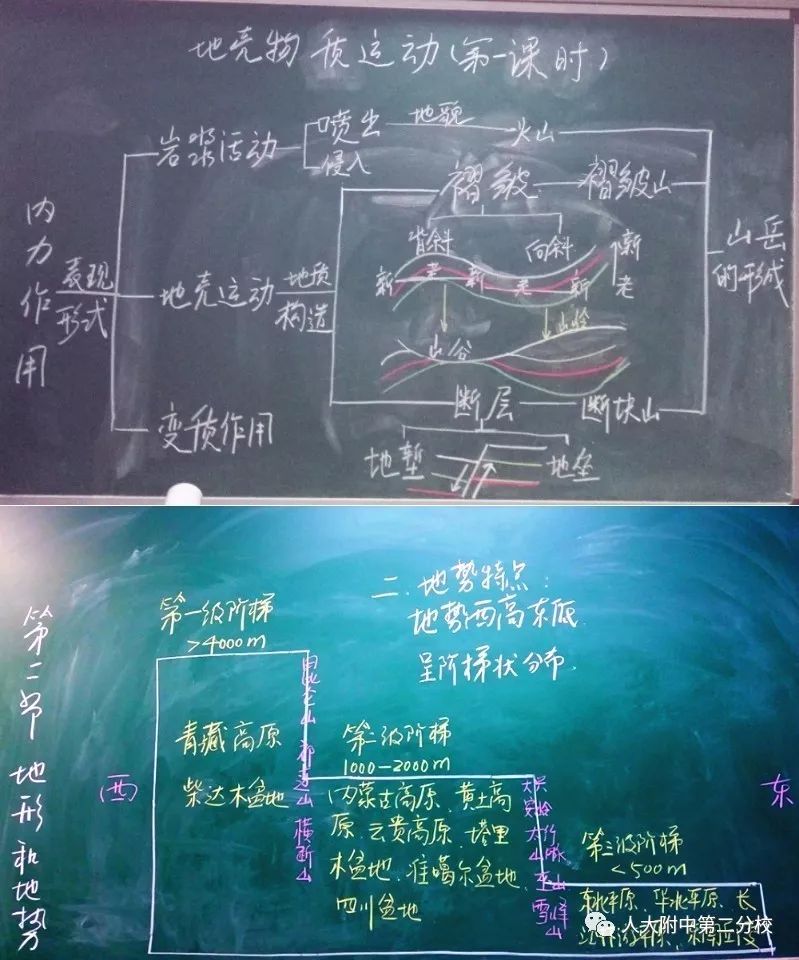 地壳物质运动(第一课时)
内力作用
表现形式
岩浆活动
喷出
地貌
火山
侵入
褶皱
褶皱山
背斜
向斜
新 老 新 老 新
新
老
地壳运动
地质构造
山谷
山岭
山岳的形成
断层
断块山
变质作用
地堑
地垒
第二节 地形和地势
二.地势特点:
地势西高东低
呈阶梯状分布.
第一级阶梯
>4000m
青藏高原
柴达木盆地
昆仑山
横断山
第二级阶梯
1000-2000m
内蒙古高原.黄土高
原.云贵高原.塔里
木盆地.准噶尔盆地.
四川盆地
大兴安岭
太行山脉
巫山
雪峰山
第三级阶梯
<500m
东北平原.华北平原.长
西
东
人大附中第二分校